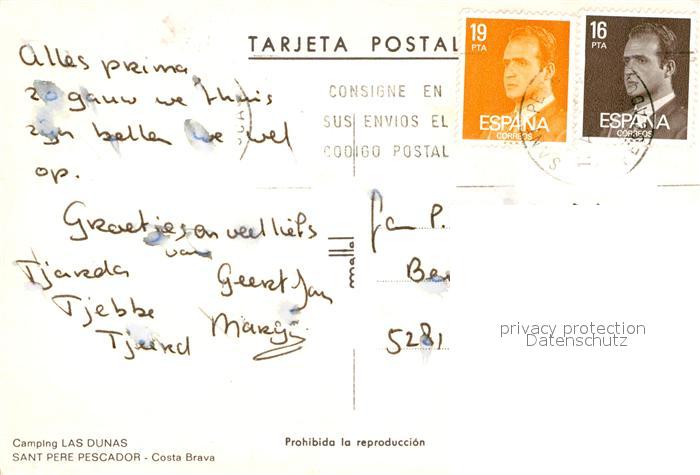 TARJETA POSTAL
19
PTA
ESPAÑA
CORREOS
16
PTA
ESPAÑA
CORREOS
CONSIGNE EN
SUS ENVIOS EL
CODIGO POSTAL
Alles prima
zo gauw we thuis
zijn bellen we wel
op.
Groetjes en veel liefs
van
Tjarda Geert Jan
Tjebbe
Tjeerd Margje
mallal
Fam P.
5281
privacy protection
Datenschutz
Camping LAS DUNAS
SANT PERE PESCADOR - Costa Brava
Prohibida la reproducción